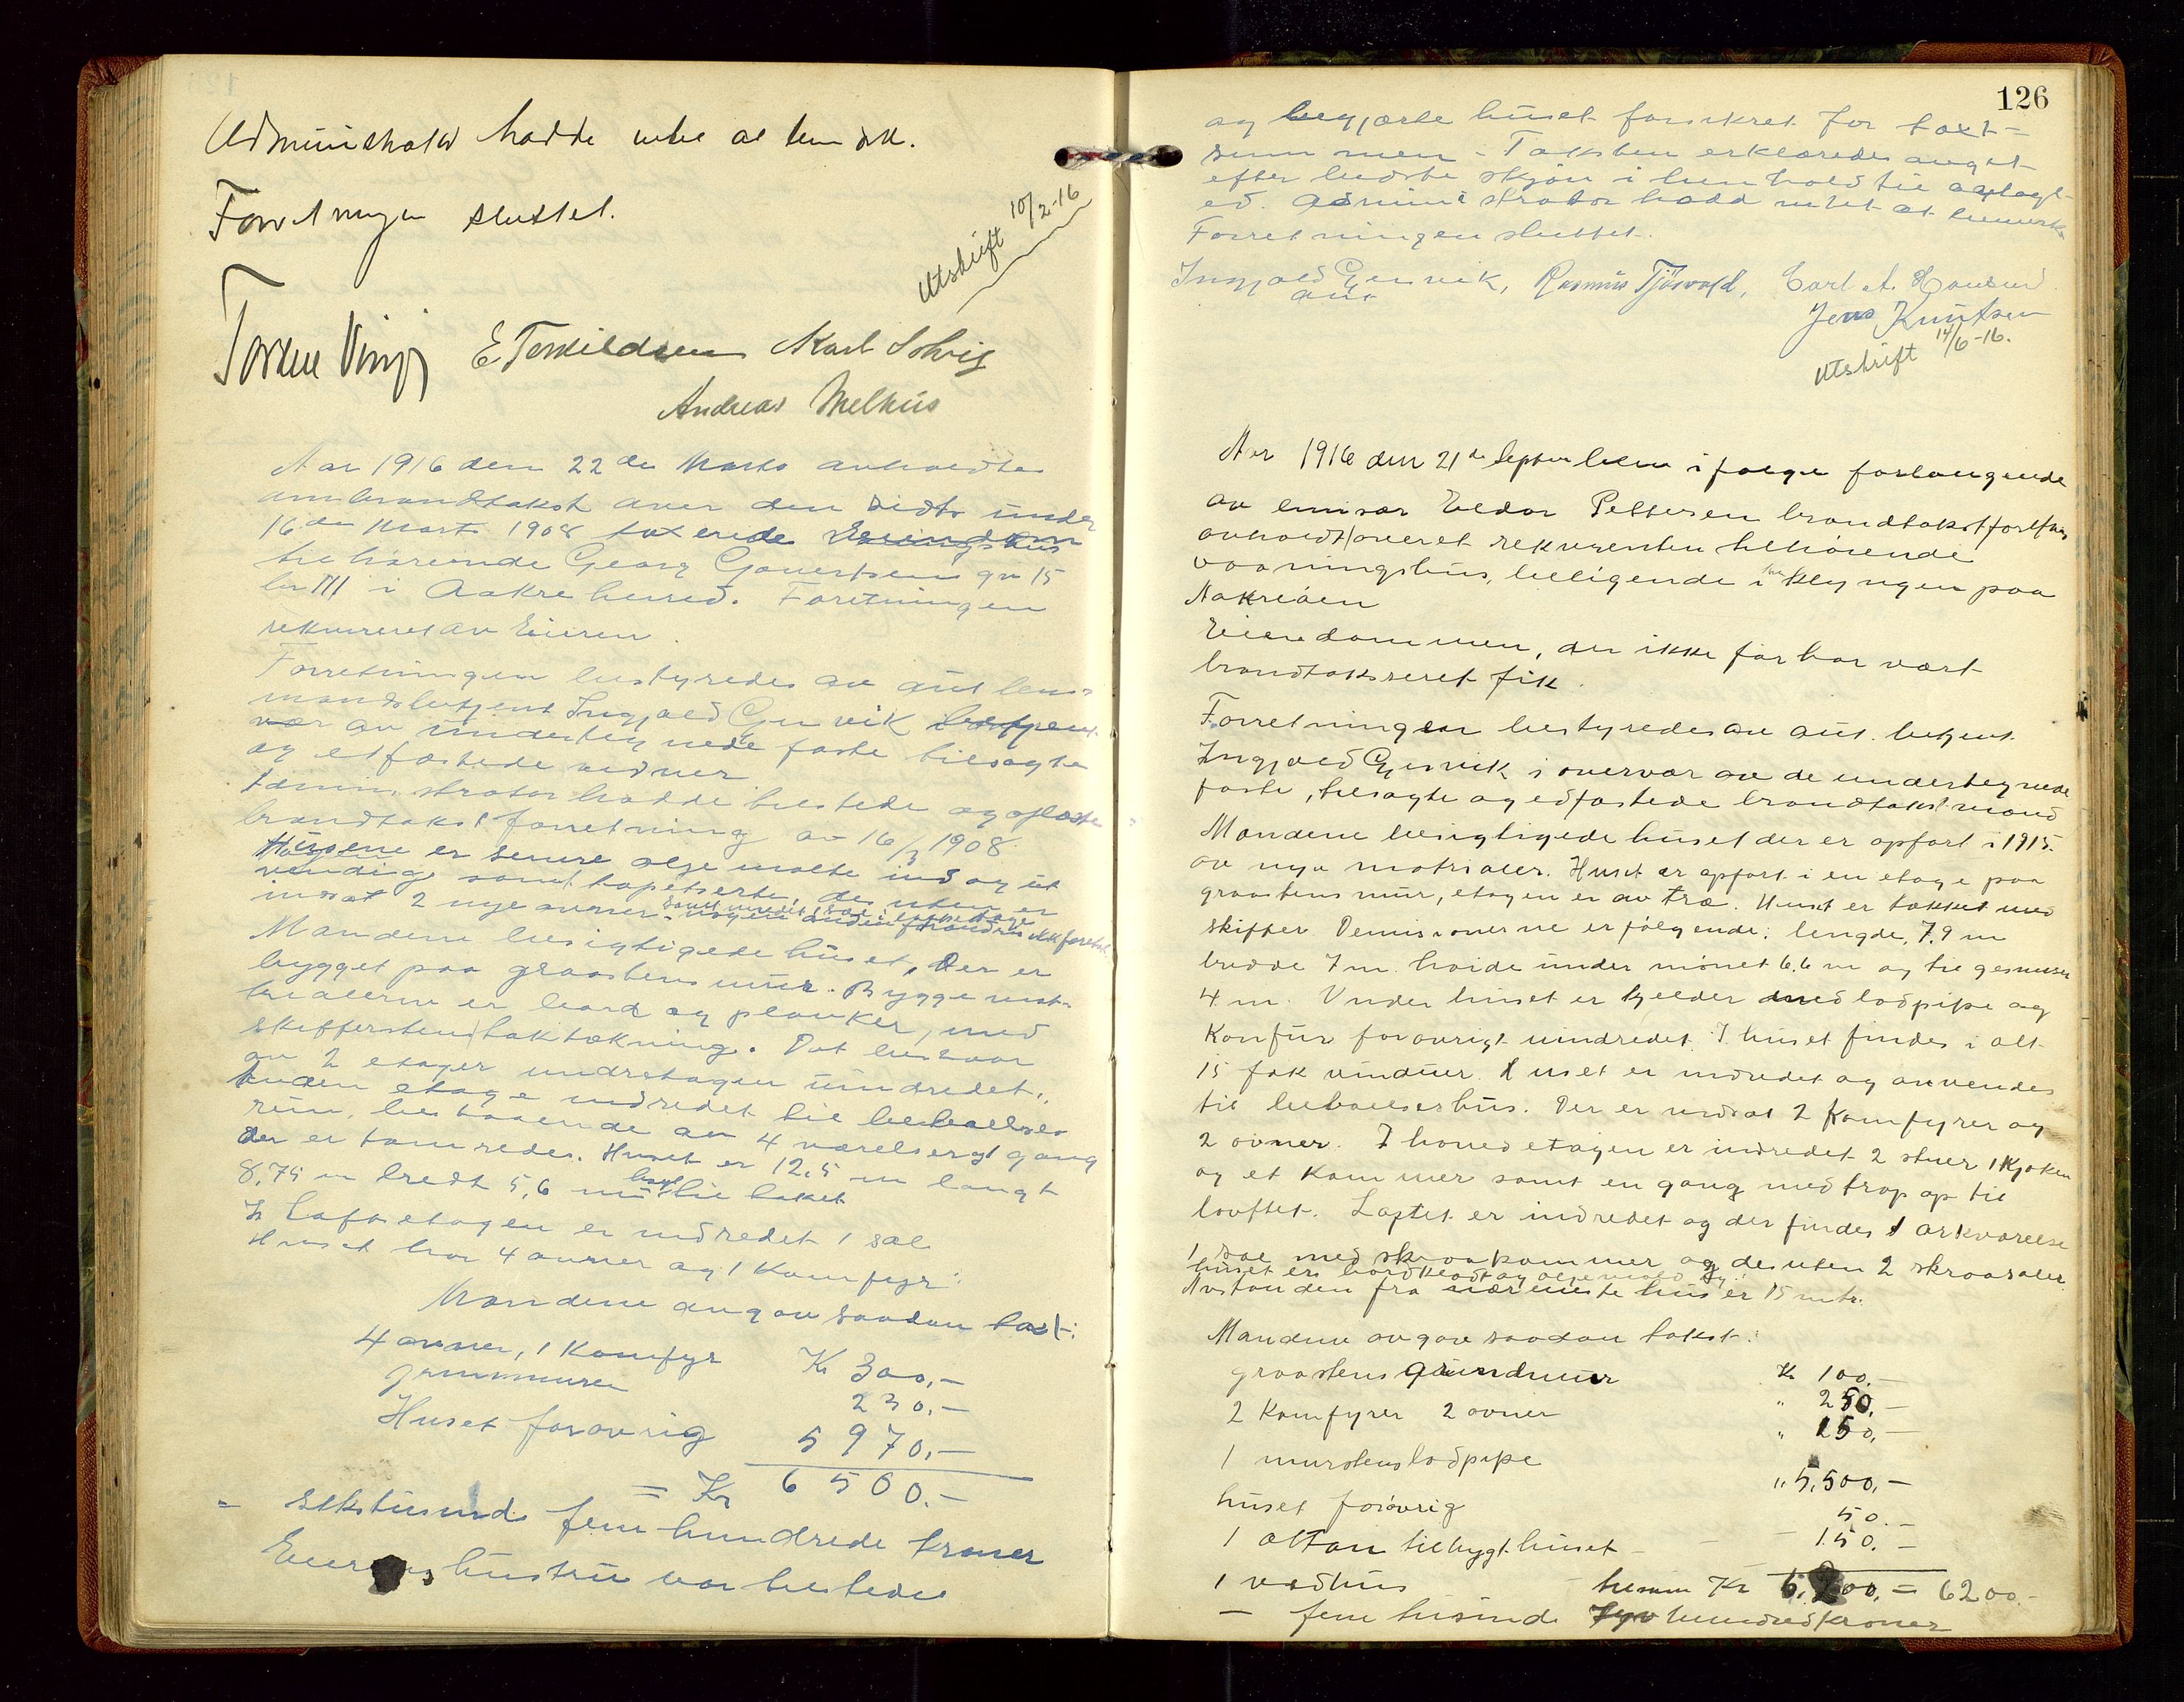 Administrator hadde intet at bemerke.
Forretningen sluttet.
Utskrift 10/2-16
E Torkildsen Karl Solvig
Andreas Melhus
Aar 1916 den 22de Marts avholdtes
ombrandtakst over den sidst under
16de Marts 1908 takserede
tilhørende Georg Govertsen gn 15
bn 111 i Aakre herred. Forretningen
rekvireret av Eieren.
Forretningen bestyredes av aut lens-
mandsbetjent Ingjald Gjersvik
av undertegnede faste tilsagte
og edfæstede vidner
Administrator hadde tilstede og oplæste
brandtakstforretning av 16/3 1908.
Husene er senere oljemalte ind og ut
vendig samt tapetserte, desuten er
indsat 2 nye ovner
Mændene besigtigede huset, Der er
bygget paa graastens mur. Bygge mat-
erialerne er bord og planker, med
skifferstens taktækning. Det bestaar
av 2 etager underetagen uindredet.
Anden etage indredet til beboelses
rum, bestaaende av 4 værelser og 1 gang
der er tomredes. Huset er 12,5 m langt
8,75 m bredt 5,6 m høit til taket
I Loftsetagen er indredet 1 sal
Huset har 4 ovner og 1 Komfyr.
Mændene angav saadan takst:
4 ovner, 1 Komfyr Kr 300,-
grunmuren 230,-
Huset forøvrig 5970,-
= Kr 6500.-
= sekstusind fem hundrede kroner
Eierens hustru var tilstede
126
og begjærte huset forsikret for takst-
summen - Taksten erklæredes avgit
efter bedste skjøn i henhold til avlagt
ed. Administrator hadde intet at bemerke
Forretningen sluttet.
Ingjald Gjersvik, Rasmus Tjøsvold, Carl A. Hansen
aut
Jens Knutsen
Utskrift 14/6-16.
Aar 1916 den 21de September i følge forlangende
av emisær Eldor Pettersen brandtakstforretn
avholdt over et rekvirenten tilhørende
vaaningshus, beliggende i hus klyngen paa
Aakreøen
Eiendommen, der ikke før har vært
brandtakseret fik
Forretningen bestyredes av aut. betjent
Ingjald Gjersvik i overvær av de undertegnede
faste, tilsagte og edfæstede brandtakstmænd
Mændene besigtigede huset der er opført i 1915.
av nye matrialer. Huset er opført i en etage paa
graastens mur, etagen er av træ. Huset er tækket med
skiffer Demisionerne er følgende: lengde, 7,9 m
bredde 7 m. høide under mønet 6,6 m og til gesimsen
4 m. Under huset er kjelder med lodpipe og
Komfur forøvrigt uindredet. I huset findes i alt
15 fak vinduer. Huset er indredet og anvendes
til beboelseshus. Der er indsat 2 Komfyrer og
2 ovner. I hovedetagen er indredet 2 stuer 1 Kjøken
og et Kammer samt en gang med trap op til
lovftet. Loftet er indredet og der findes 1 arkværelse
1 sal med skraakammer og desuten 2 skraasaler
huset er bordklædt og oljemalt
Avstanden fra nærmeste hus er 15 mtr.
Mændene avgav saadan takst:
graastens grundmur Kr 100.-
2 Komfyrer 2 ovner " 250.-
1 murstenslodpipe " 150,-
huset forøvrig " 5,500,-
1 altan tilbygt huset 50.-
1 vedhus 150.-
tilsam Kr 6.200, = 6200.-
- fem tusinde syv hundred kroner